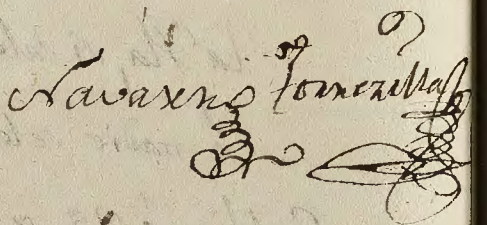 Navarro Torrezilla